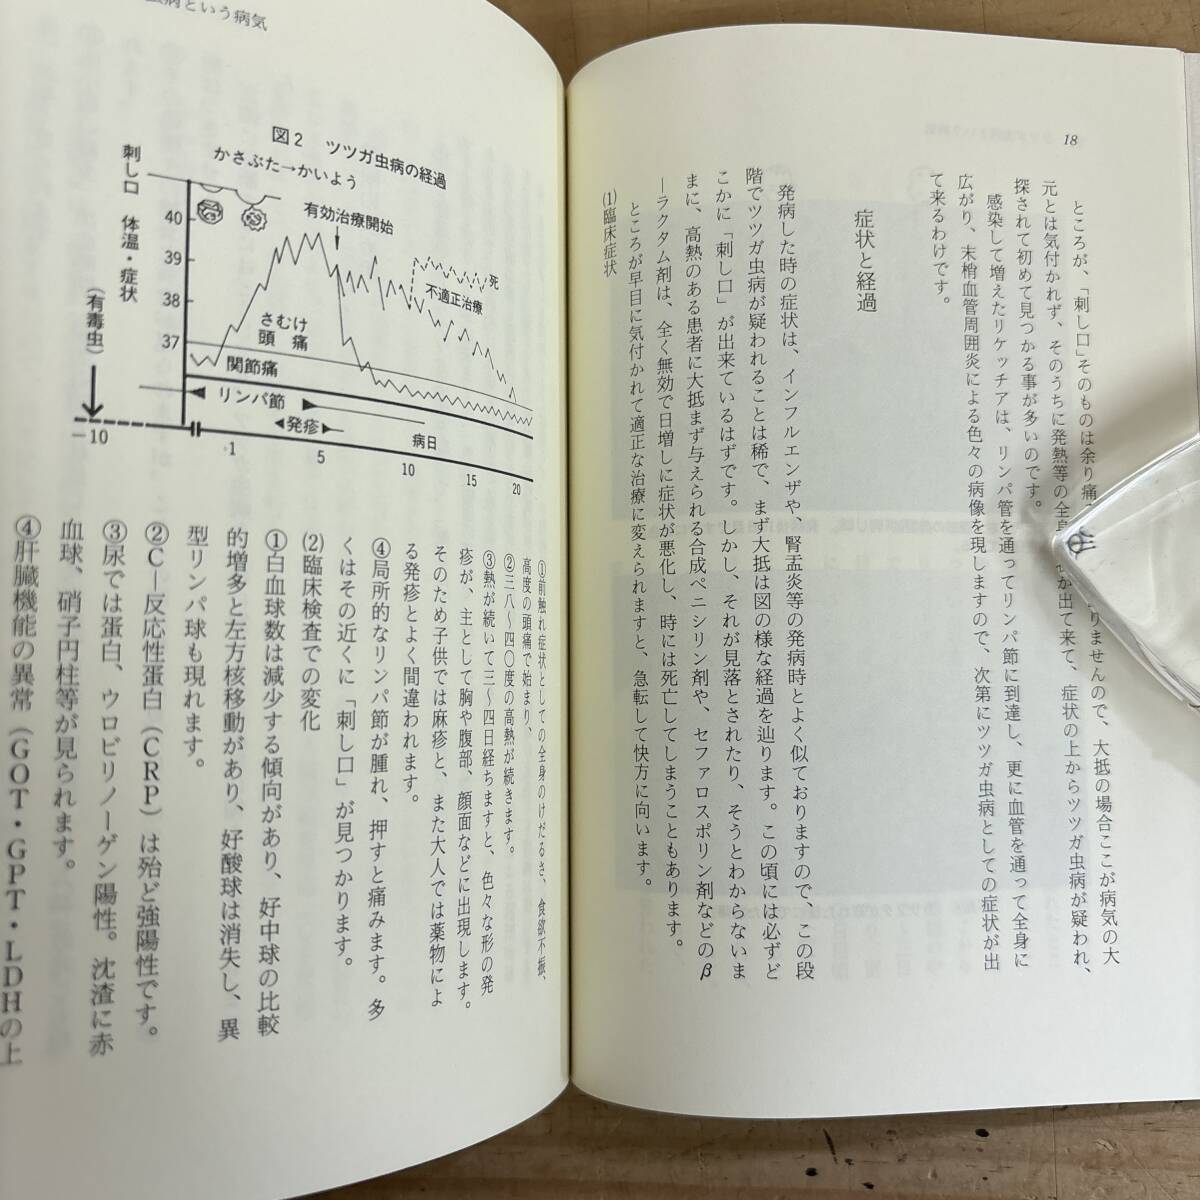 18
ところが、「刺し口」そのものは余り痛
りませんので、大抵の場合ここが病気の大
元とは気付かれず、そのうちに発熱等の全身
が出て来て、症状の上からツツガ虫病が疑われ、
探されて初めて見つかる事が多いのです。
感染して増えたリケッチアは、リンパ管を通ってリンパ節に到達し、更に血管を通って全身に
広がり、末梢血管周囲炎による色々の病像を現しますので、次第にツツガ虫病としての症状が出
て来るわけです。
症状と経過
発病した時の症状は、インフルエンザや、腎盂炎等の発病時とよく似ておりますので、この段
階でツツガ虫病が疑われることは稀で、まず大抵は図の様な経過を辿ります。この頃には必ずど
こかに「刺し口」が出来ているはずです。しかし、それが見落とされたり、そうとわからないま
まに、高熱のある患者に大抵まず与えられる合成ペニシリン剤や、セファロスポリン剤などのβ
ーラクタム剤は、全く無効で日増しに症状が悪化し、時には死亡してしまうこともあります。
ところが早目に気付かれて適正な治療に変えられますと、急転して快方に向います。
(1)臨床症状
虫病という病気
図2 ツツガ虫病の経過
かさぶた→かいよう
刺し口 体温・症状
(有毒虫)
40
39
38
37
有効治療開始
死
不適正治療
さむけ
頭痛
関節痛
リンパ節
発疹
病日
−10
1
5
10
15
20
①前触れ症状としての全身のけだるさ、食欲不振、
高度の頭痛で始まり、
②三八〜四〇度の高熱が続きます。
③熱が続いて三〜四日経ちますと、色々な形の発
疹が、主として胸や腹部、顔面などに出現します。
そのため子供では麻疹と、また大人では薬物によ
る発疹とよく間違われます。
④局所的なリンパ節が腫れ、押すと痛みます。多
くはその近くに「刺し口」が見つかります。
(2)臨床検査での変化
①白血球数は減少する傾向があり、好中球の比較
的増多と左方核移動があり、好酸球は消失し、異
型リンパ球も現れます。
②C－反応性蛋白（CRP）は殆ど強陽性です。
③尿では蛋白、ウロビリノーゲン陽性。沈渣に赤
血球、硝子円柱等が見られます。
④肝臓機能の異常（GOT・GPT・LDHの上